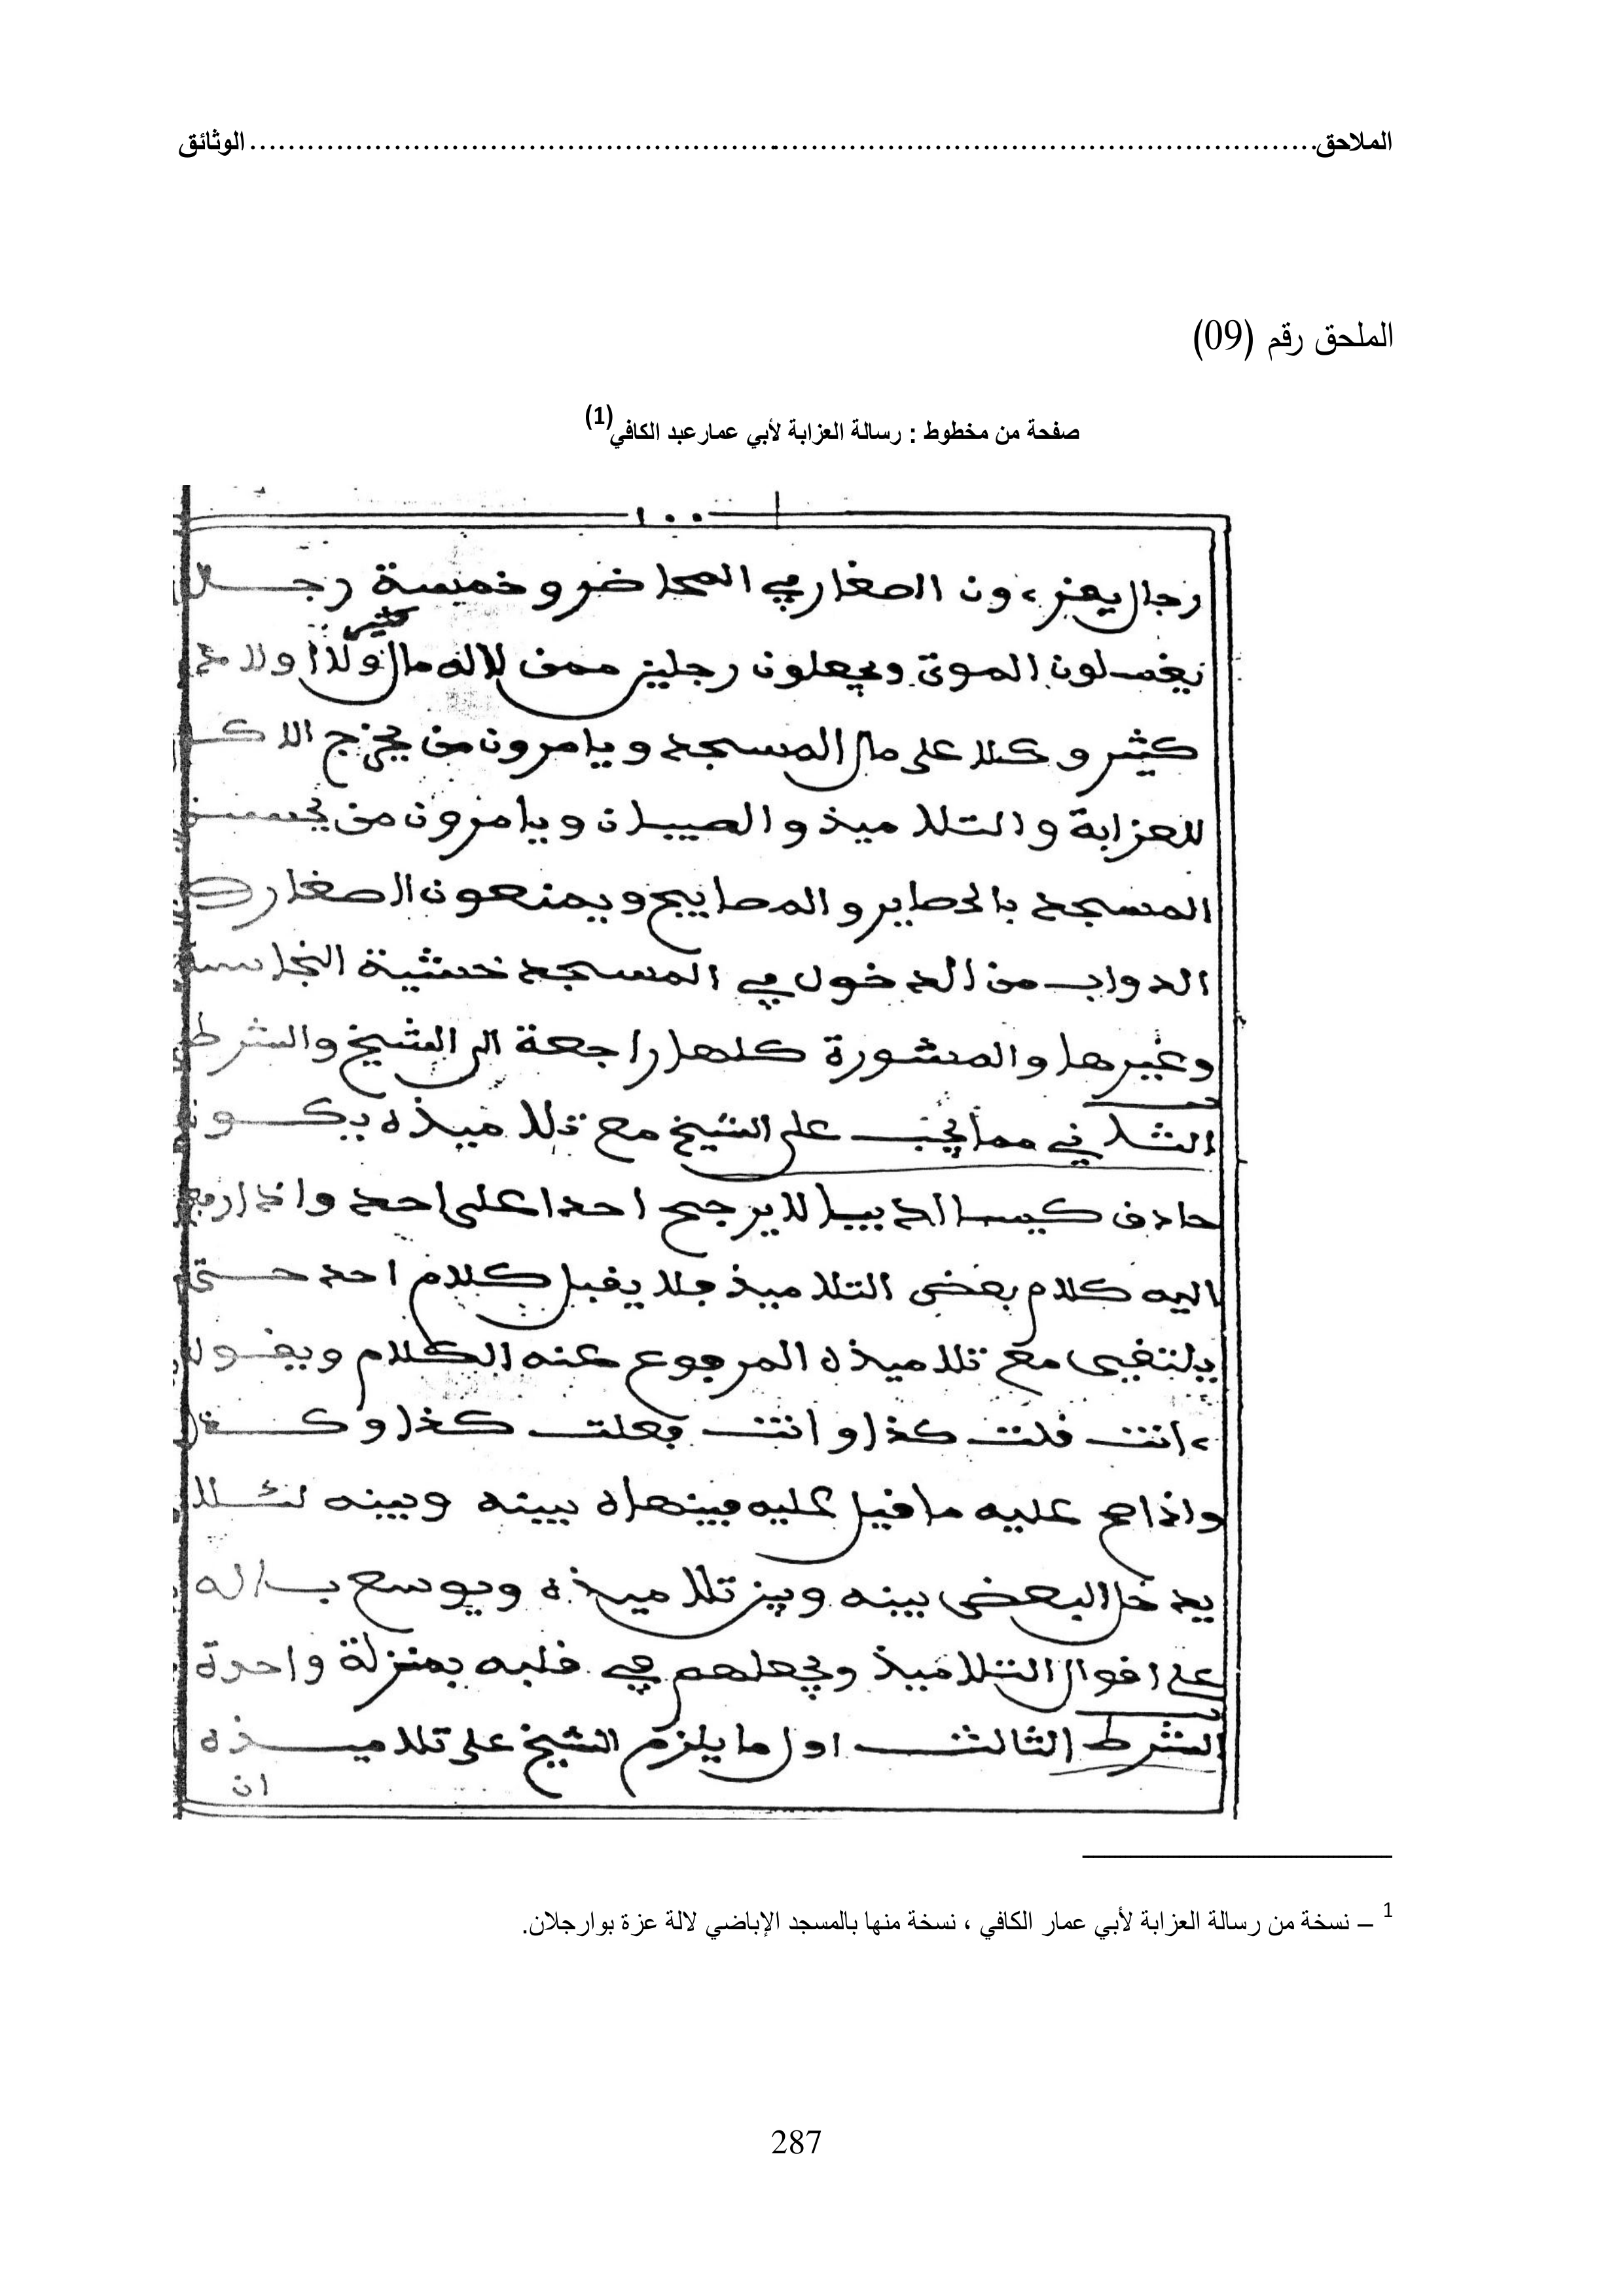 الملاحق........................................................................................................الوثائق
الملحق رقم (09)
صفحة من مخطوط : رسالة العزابة لأبي عمارعبد الكافي(1)
١٠٠
رجال يفرءون الصغار في المحاضر وخمسة رجال
يغسلون الموتى ويجعلون رجلين ممن لاله مال ولا اولاد
كثير
كثير وكلا على مال المسجد ويامرون من يخرج الاكل
للعزابة والتلاميذ والصبيان ويامرون من يحسن
المسجد بالحصاير والمصابيح ويمنعون الصغار و
الدواب من الدخول في المسجد خشية النجاسة
وغيرها والمشورة كلها راجعة الى الشيخ والشرط
الثاني مما يجب على الشيخ مع تلاميذه يكون
حاذف كيسا لا يرجح احدا على احد واذا رفع
اليه كلام بعض التلاميذ فلا يقبل كلام احد حتى
يلتقي مع تلاميذه المرفوع عنه الكلام ويقول
ءانت قلت كذا وانت فعلت كذا وكذا
واذا صح عليه ما قيل عليه فينهاه بينه وبينه لئلا
يدخل البعض بينه وبين تلاميذه ويوسع باله
على اقوال التلاميذ ويجعلهم في قلبه بمنزلة واحدة
الشرط الثالث اول ما يلزم الشيخ على تلاميذه
ان
1 – نسخة من رسالة العزابة لأبي عمار الكافي ، نسخة منها بالمسجد الإباضي لالة عزة بوارجلان.
287